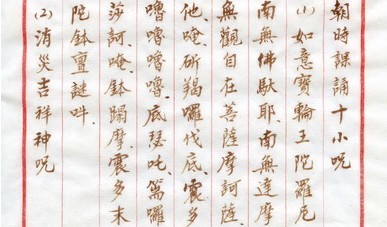 朝時課誦十小咒
(1)如意寶輪王陀羅尼
南無佛馱耶、南無達摩
無觀自在菩薩摩訶薩、
他、唵、斫羯囉伐底、震多
嚕嚕嚕、底瑟吒、篤囉
莎訶、唵、鉢蹋摩、震多末
陀鉢亶謎吽、
(2)消災吉祥神咒